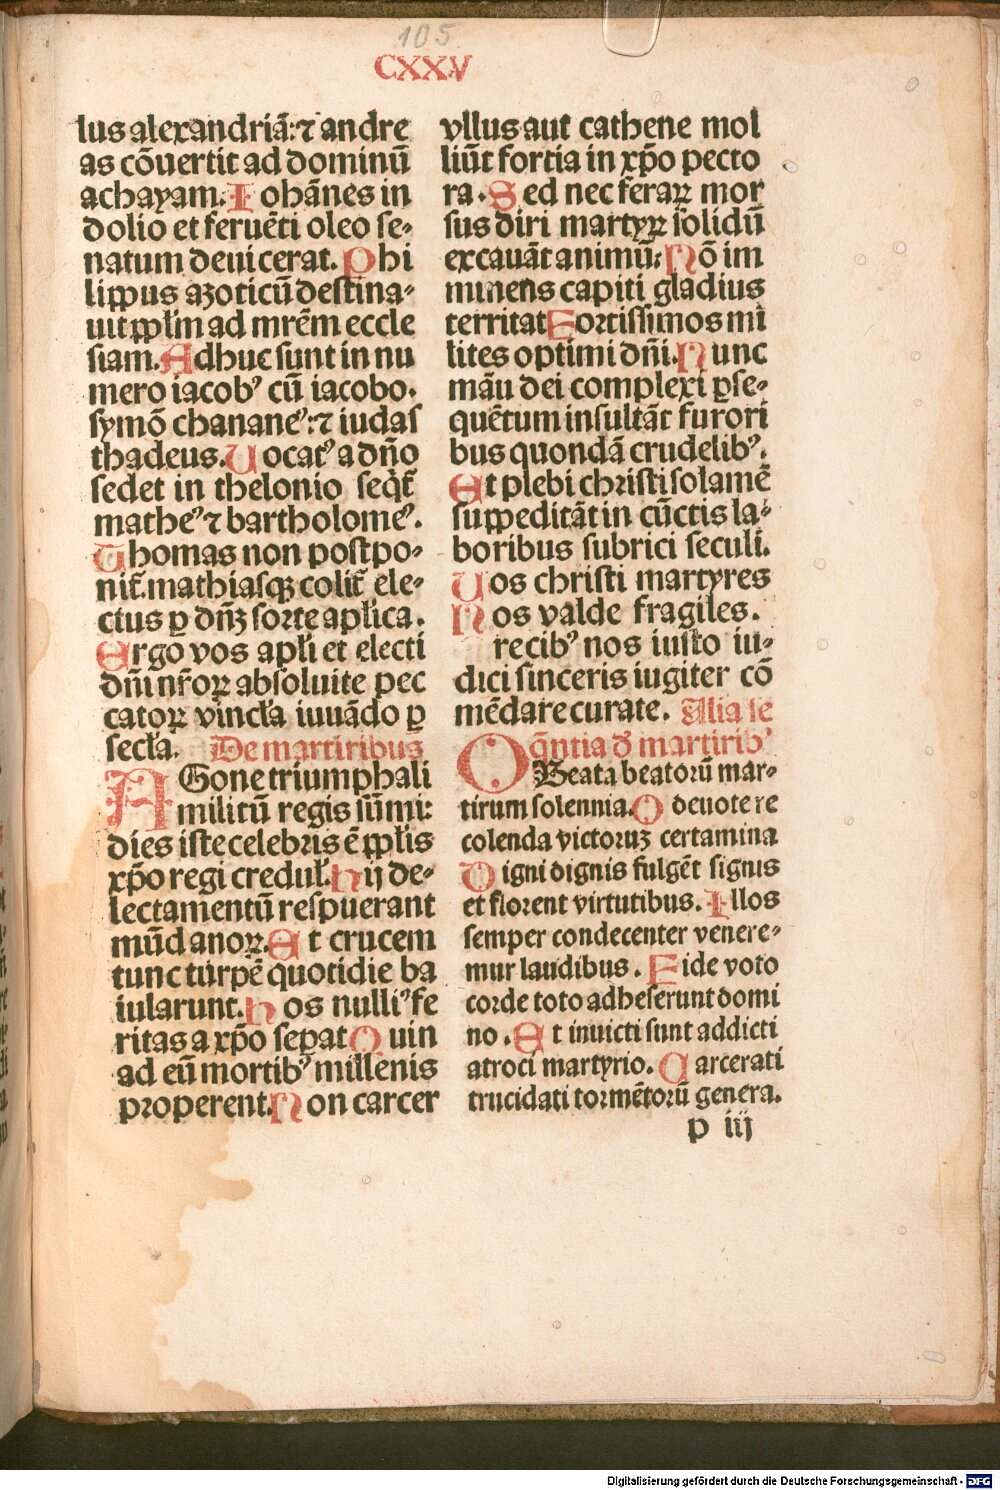 105
CXXV
lus alexandriā: ⁊ andre
as cōuertit ad dominū
achayam. Iohānes in
dolio et feruēti oleo se⸗
natum deuicerat. Phi
lippus azoticū destina⸗
uit ꝓpl'm ad mrēm eccle
siam. Adhuc sunt in nu
mero iacobꝰ cū iacobo.
symō chananeꝰ: ⁊ iudas
thadeus. Uocatꝰ a dn̄o
sedet in thelonio seqt̄
matheꝰ ⁊ bartholomeꝰ.
Thomas non postpo⸗
nit̄. mathiasqꝫ colit̄ ele⸗
ctus ꝑ dn̄ꝫ sorte apl'ica.
Ergo vos apl'i et electi
dn̄i nr̄oꝝ absoluite pec
catoꝝ vincl'a iuuādo ꝑ
secl'a. De martiribus
AGone triumphali
militū regis sūmi:
dies iste celebris ē ꝓpl'is
xp̄o regi credul'. Hij de⸗
lectamentū respuerant
mūdanoꝝ. Et crucem
tunc turpē quotidie ba
iularunt. Hos nulliꝰ fe
ritas a xp̄o sepat Quin
ad eū mortibꝰ millenis
properent. Non carcer
vllus aut cathene mol
liūt fortia in xp̄o pecto
ra. Sed nec feraꝝ mor
sus diri martyꝝ solidū
excauāt animū: Nō im
minens capiti gladius
territat Fortissimos mi
lites optimi dn̄i. Nunc
māu dei complexi ꝑse⸗
quētum insultāt furori
bus quondā crudelibꝰ.
Et plebi christi solamē
suppeditāt in cūctis la⸗
boribus lubrici seculi.
Uos christi martyres
Nos valde fragiles.
recibꝰ nos iusto iu⸗
dici sinceris iugiter cō
mēdare curate. Alia se
q̄ntia đ martiribꝰ
O Beata beatorū mar⸗
tirum solennia. O deuote re
colenda victoruꝫ certamina
Digni dignis fulgēt signis
et florent virtutibus. Illos
semper condecenter venere⸗
mur laudibus. Fide voto
corde toto adheserunt domi
no. Et inuicti sunt addicti
atroci martyrio. Carcerati
trucidati tormētorū genera.
p iij
Digitalisierung gefördert durch die Deutsche Forschungsgemeinschaft - DFG